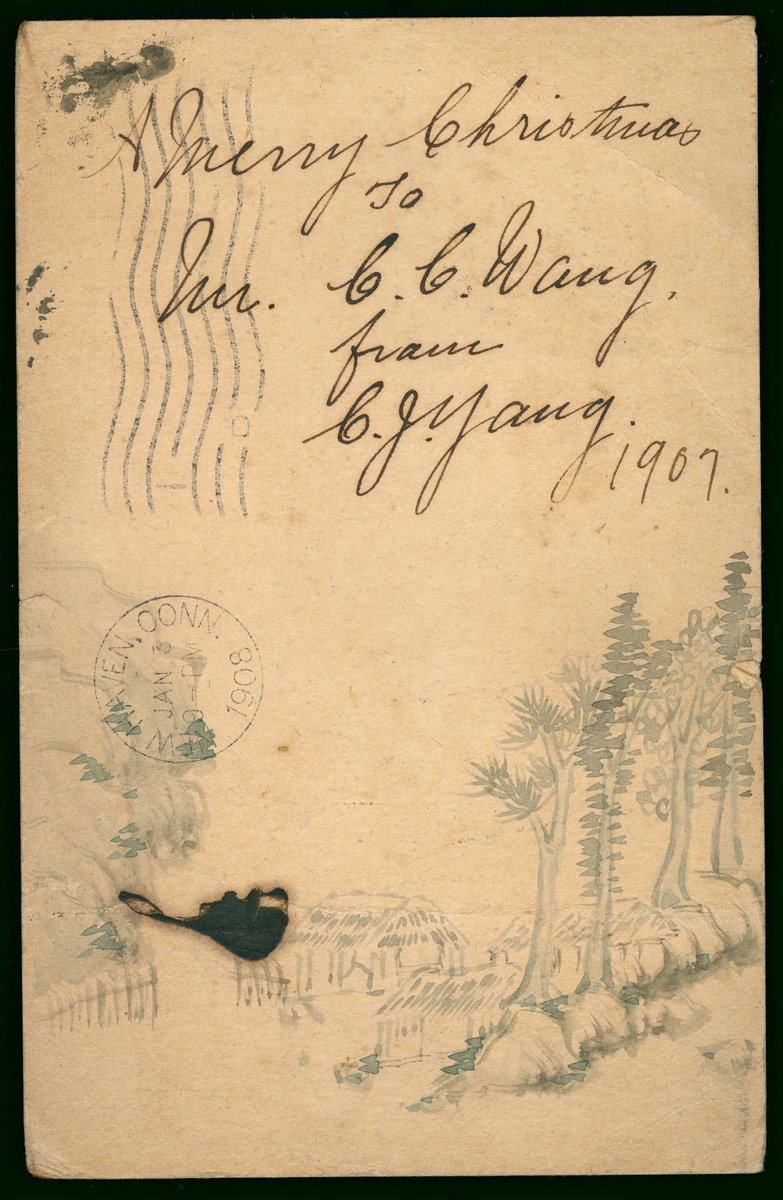 A Merry Christmas
To
Mr. C. C. Wang,
from
C. J. Yang.
1907.
W HAVEN, CONN.
JAN 3
9 - PM
1908